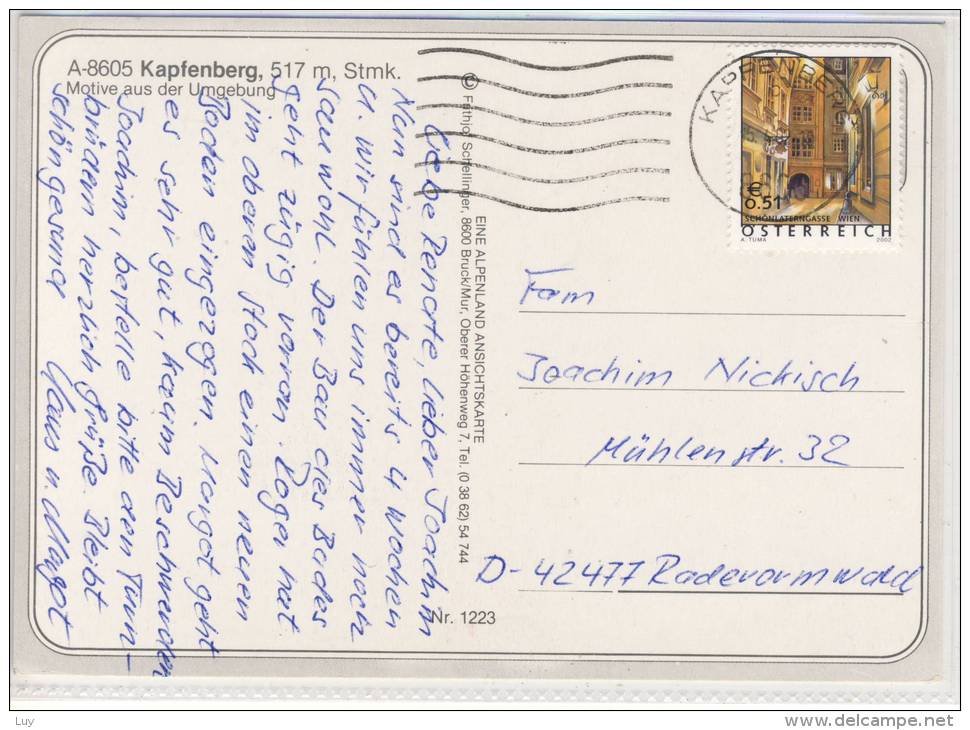 A-8605 Kapfenberg, 517 m, Stmk.
Motive aus der Umgebung
Liebe Renate, lieber Joachim
Nun sind es bereits 4 Wochen
u. wir fühlen uns immer noch
sauwohl. Der Bau des Bades
geht zügig voran. Roger hat
im oberen Stock einen neuen
Boden eingezogen. Margot geht
es sehr gut, kaum Beschwerden
Joachim, bestelle bitte den Turn-
brüdern herzlich Grüße. Bleibt
schön gesund
Klaus u. Margot
© Frithjof Schellinger, 8600 Bruck/Mur, Oberer Höhenweg 7, Tel. (0 38 62) 54 744
EINE ALPENLAND ANSICHTSKARTE
Nr. 1223
KAPFENBERG
€
0.51
SCHÖNLATERNGASSE WIEN
ÖSTERREICH
A. TUMA 2002
Fam
Joachim Nickisch
Mühlenstr. 32
D-42477 Radevormwald
Luy
www.delcampe.net